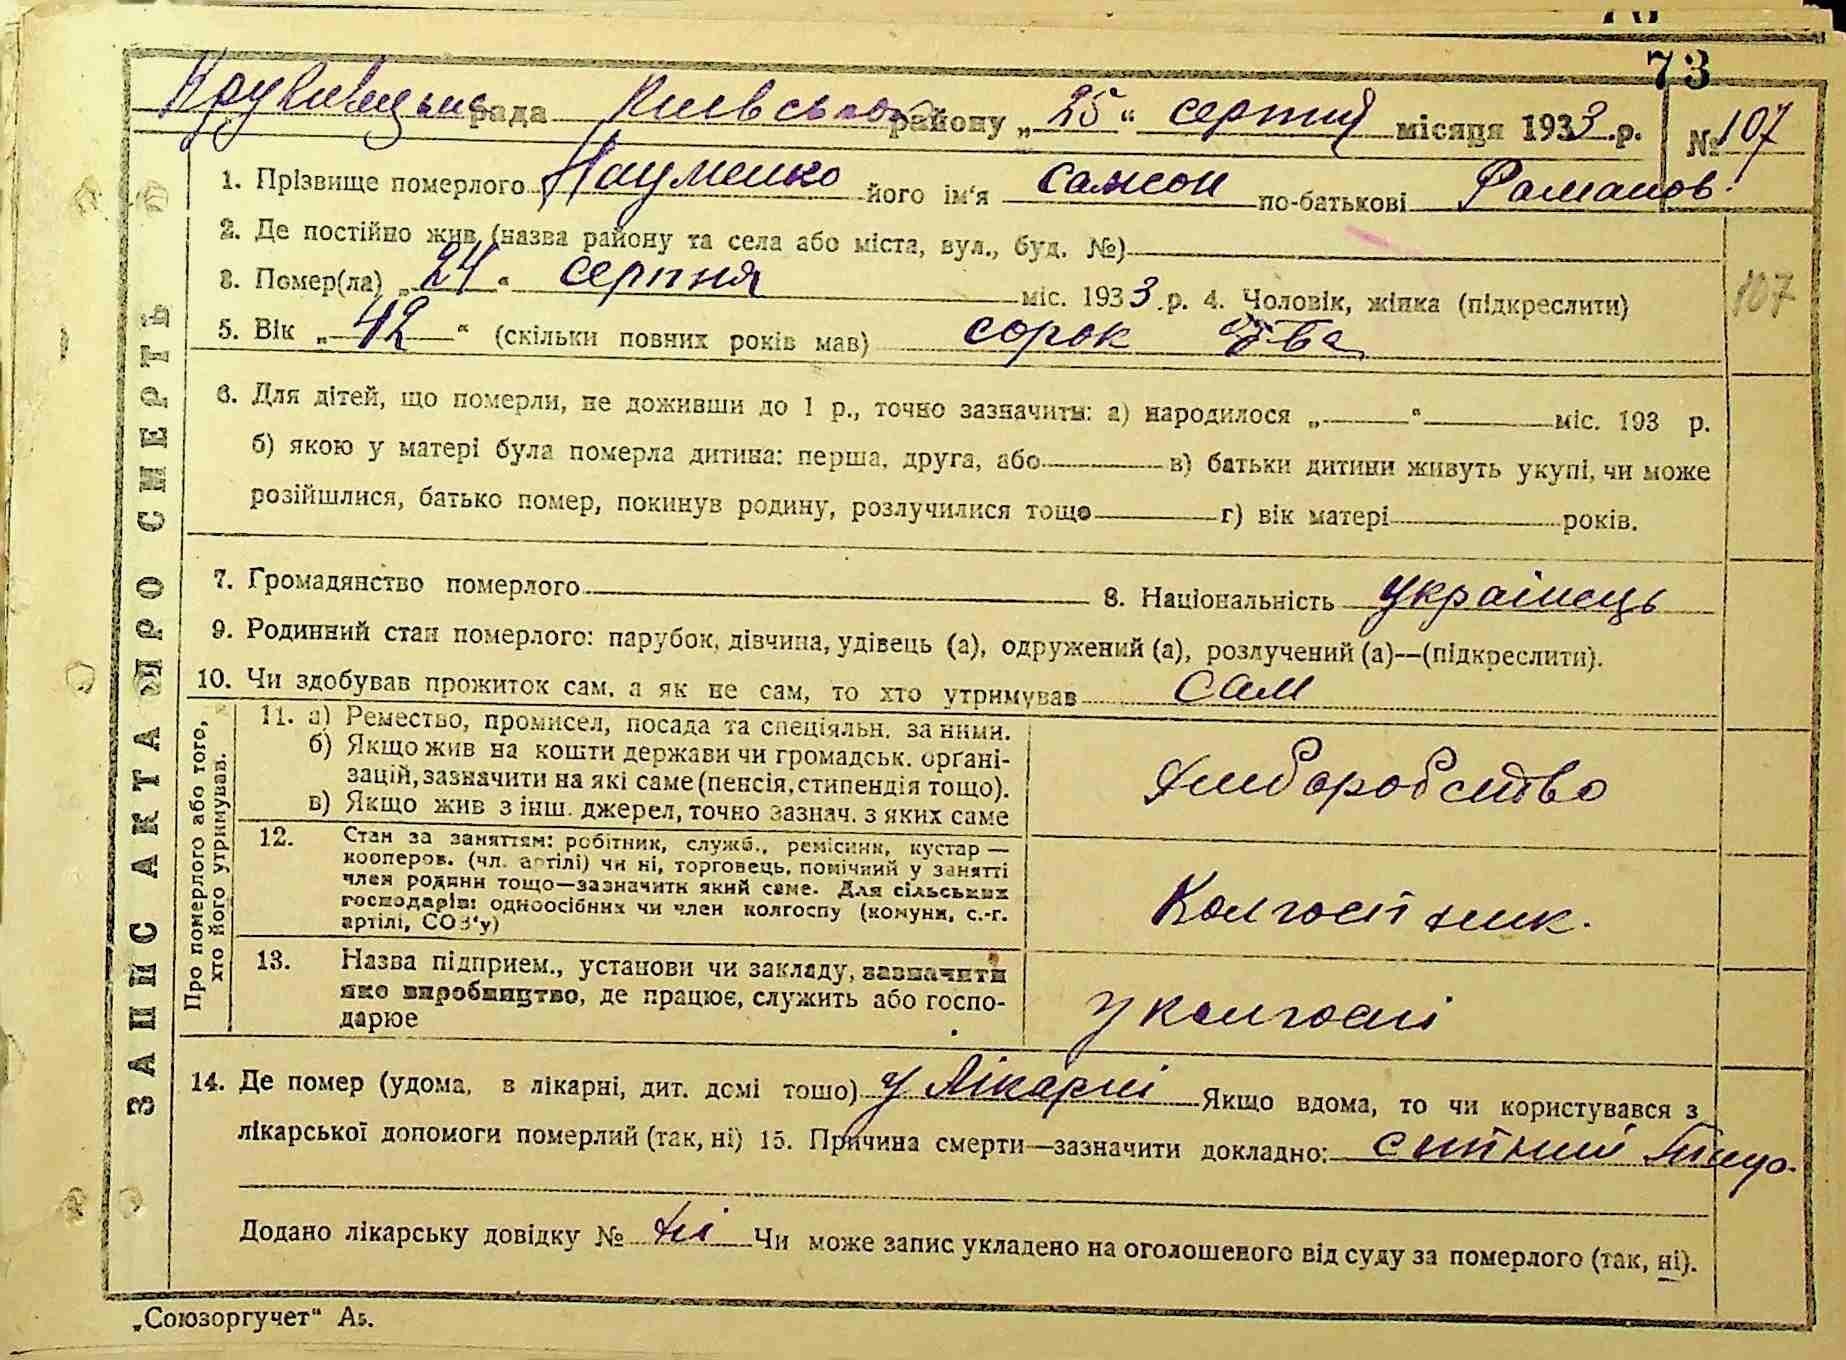 73
рада Київсько району „25“ серпня місяця 1933.р. № 107
1. Прізвище померлого Науменко його ім'я Самсон по-батькові Романов.
2. Де постійно жив (назва району та села або міста, вул., буд. №)
3. Помер(ла) „24“ серпня міс. 1933.р. 4. Чоловік, жінка (підкреслити)
107
5. Вік „42“ (скільки повних років мав) сорок два
6. Для дітей, що померли, не доживши до 1 р., точно зазначити: а) народилося „ “ міс. 193 р.
б) якою у матері була померла дитина: перша, друга, або в) батьки дитини живуть укупі, чи може
розійшлися, батько помер, покинув родину, розлучилися тощо г) вік матері років.
7. Громадянство померлого 8. Національність українець
9. Родинний стан померлого: парубок, дівчина, удівець (а), одружений (а), розлучений (а)—(підкреслити).
10. Чи здобував прожиток сам, а як не сам, то хто утримував сам
ЗАПИС АКТА ПРО СМЕРТЬ
Про померлого або того, хто його утримував.
11. а) Ремество, промисел, посада та спеціяльн. за ними.
б) Якщо жив на кошти держави чи громадськ. орґані-
зацій, зазначити на які саме (пенсія, стипендія тощо).
в) Якщо жив з інш. джерел, точно зазнач. з яких саме
хліборобство
12. Стан за заняттям: робітник, служб., ремісник, кустар —
кооперов. (чл. артілі) чи ні, торговець, помічний у занятті
член родини тощо—зазначити який саме. Для сільських
господарів: одноосібник чи член колгоспу (комуни, с.-г.
артілі, СОЗ'у)
Колгоспник.
13. Назва підприєм., установи чи закладу, зазначити
яке виробництво, де працює, служить або госпо-
дарює
у колгоспі
14. Де помер (удома, в лікарні, дит. домі тошо) у лікарні Якщо вдома, то чи користувався з
лікарської допомоги померлий (так, ні) 15. Причина смерти—зазначити докладно:
Додано лікарську довідку № ні Чи може запис укладено на оголошеного від суду за померлого (так, ні).
„Союзоргучет“ А5.